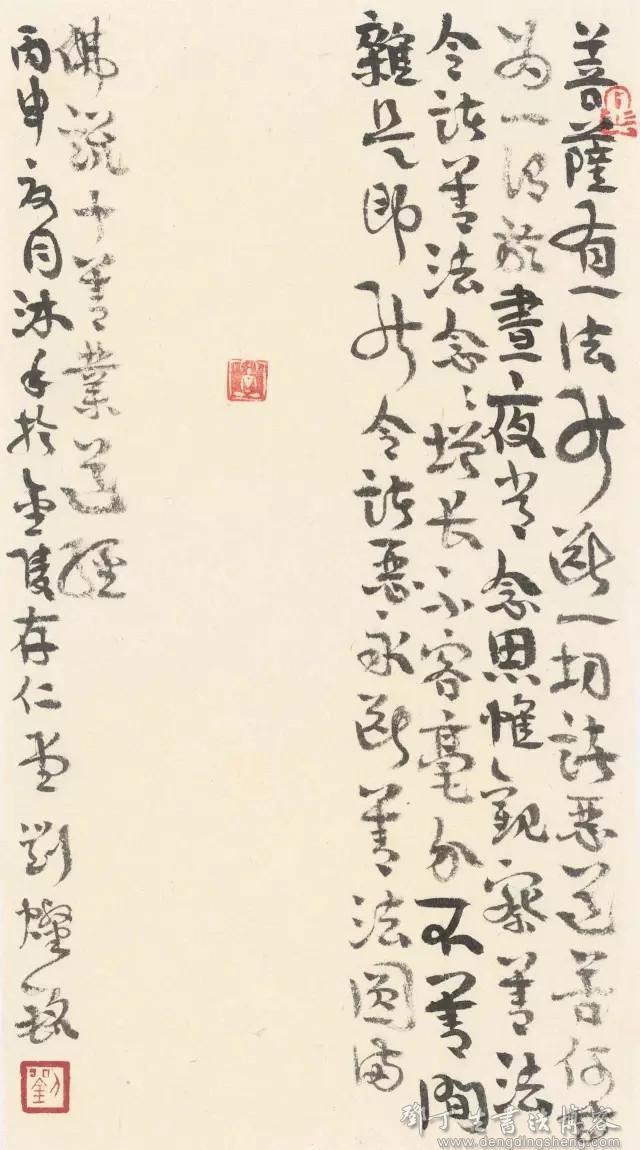 菩薩有一法能斷一切諸惡道苦何等
為一謂於晝夜常念思惟觀察善法
令諸善法念〻增長不容毫分不善間
雜是即能令諸惡永斷善法圓滿
佛説十善業道經
丙申夏月沐手於金陵存仁堂 劉燦銘
劉
鄧丁生書法博客
www.dengdingsheng.com